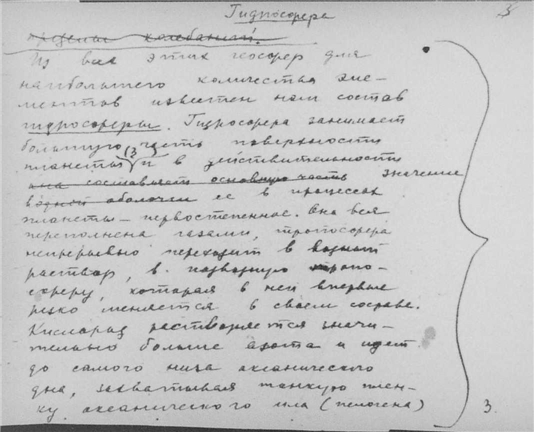 Гидросфера
пределы колебаний.
Из всех этих геосфер для
наибольшего количества эле-
ментов известен нам состав
гидросферы. Гидросфера занимает
большую часть поверхности
планеты и в действительности
она составляет основную часть значение
водной оболочки ее в процессах
планеты – первостепенное. Она вся
переполнена газами, тропосфера
непрерывно переходит в водный
раствор, в подводную тропо-
сферу, которая в ней впервые
резко меняется в своем составе.
Кислород растворяется значи-
тельно больше азота и идет
до самого низа океанического
дна, захватывая тонкую плен-
ку океанического ила (пелогена)
3.